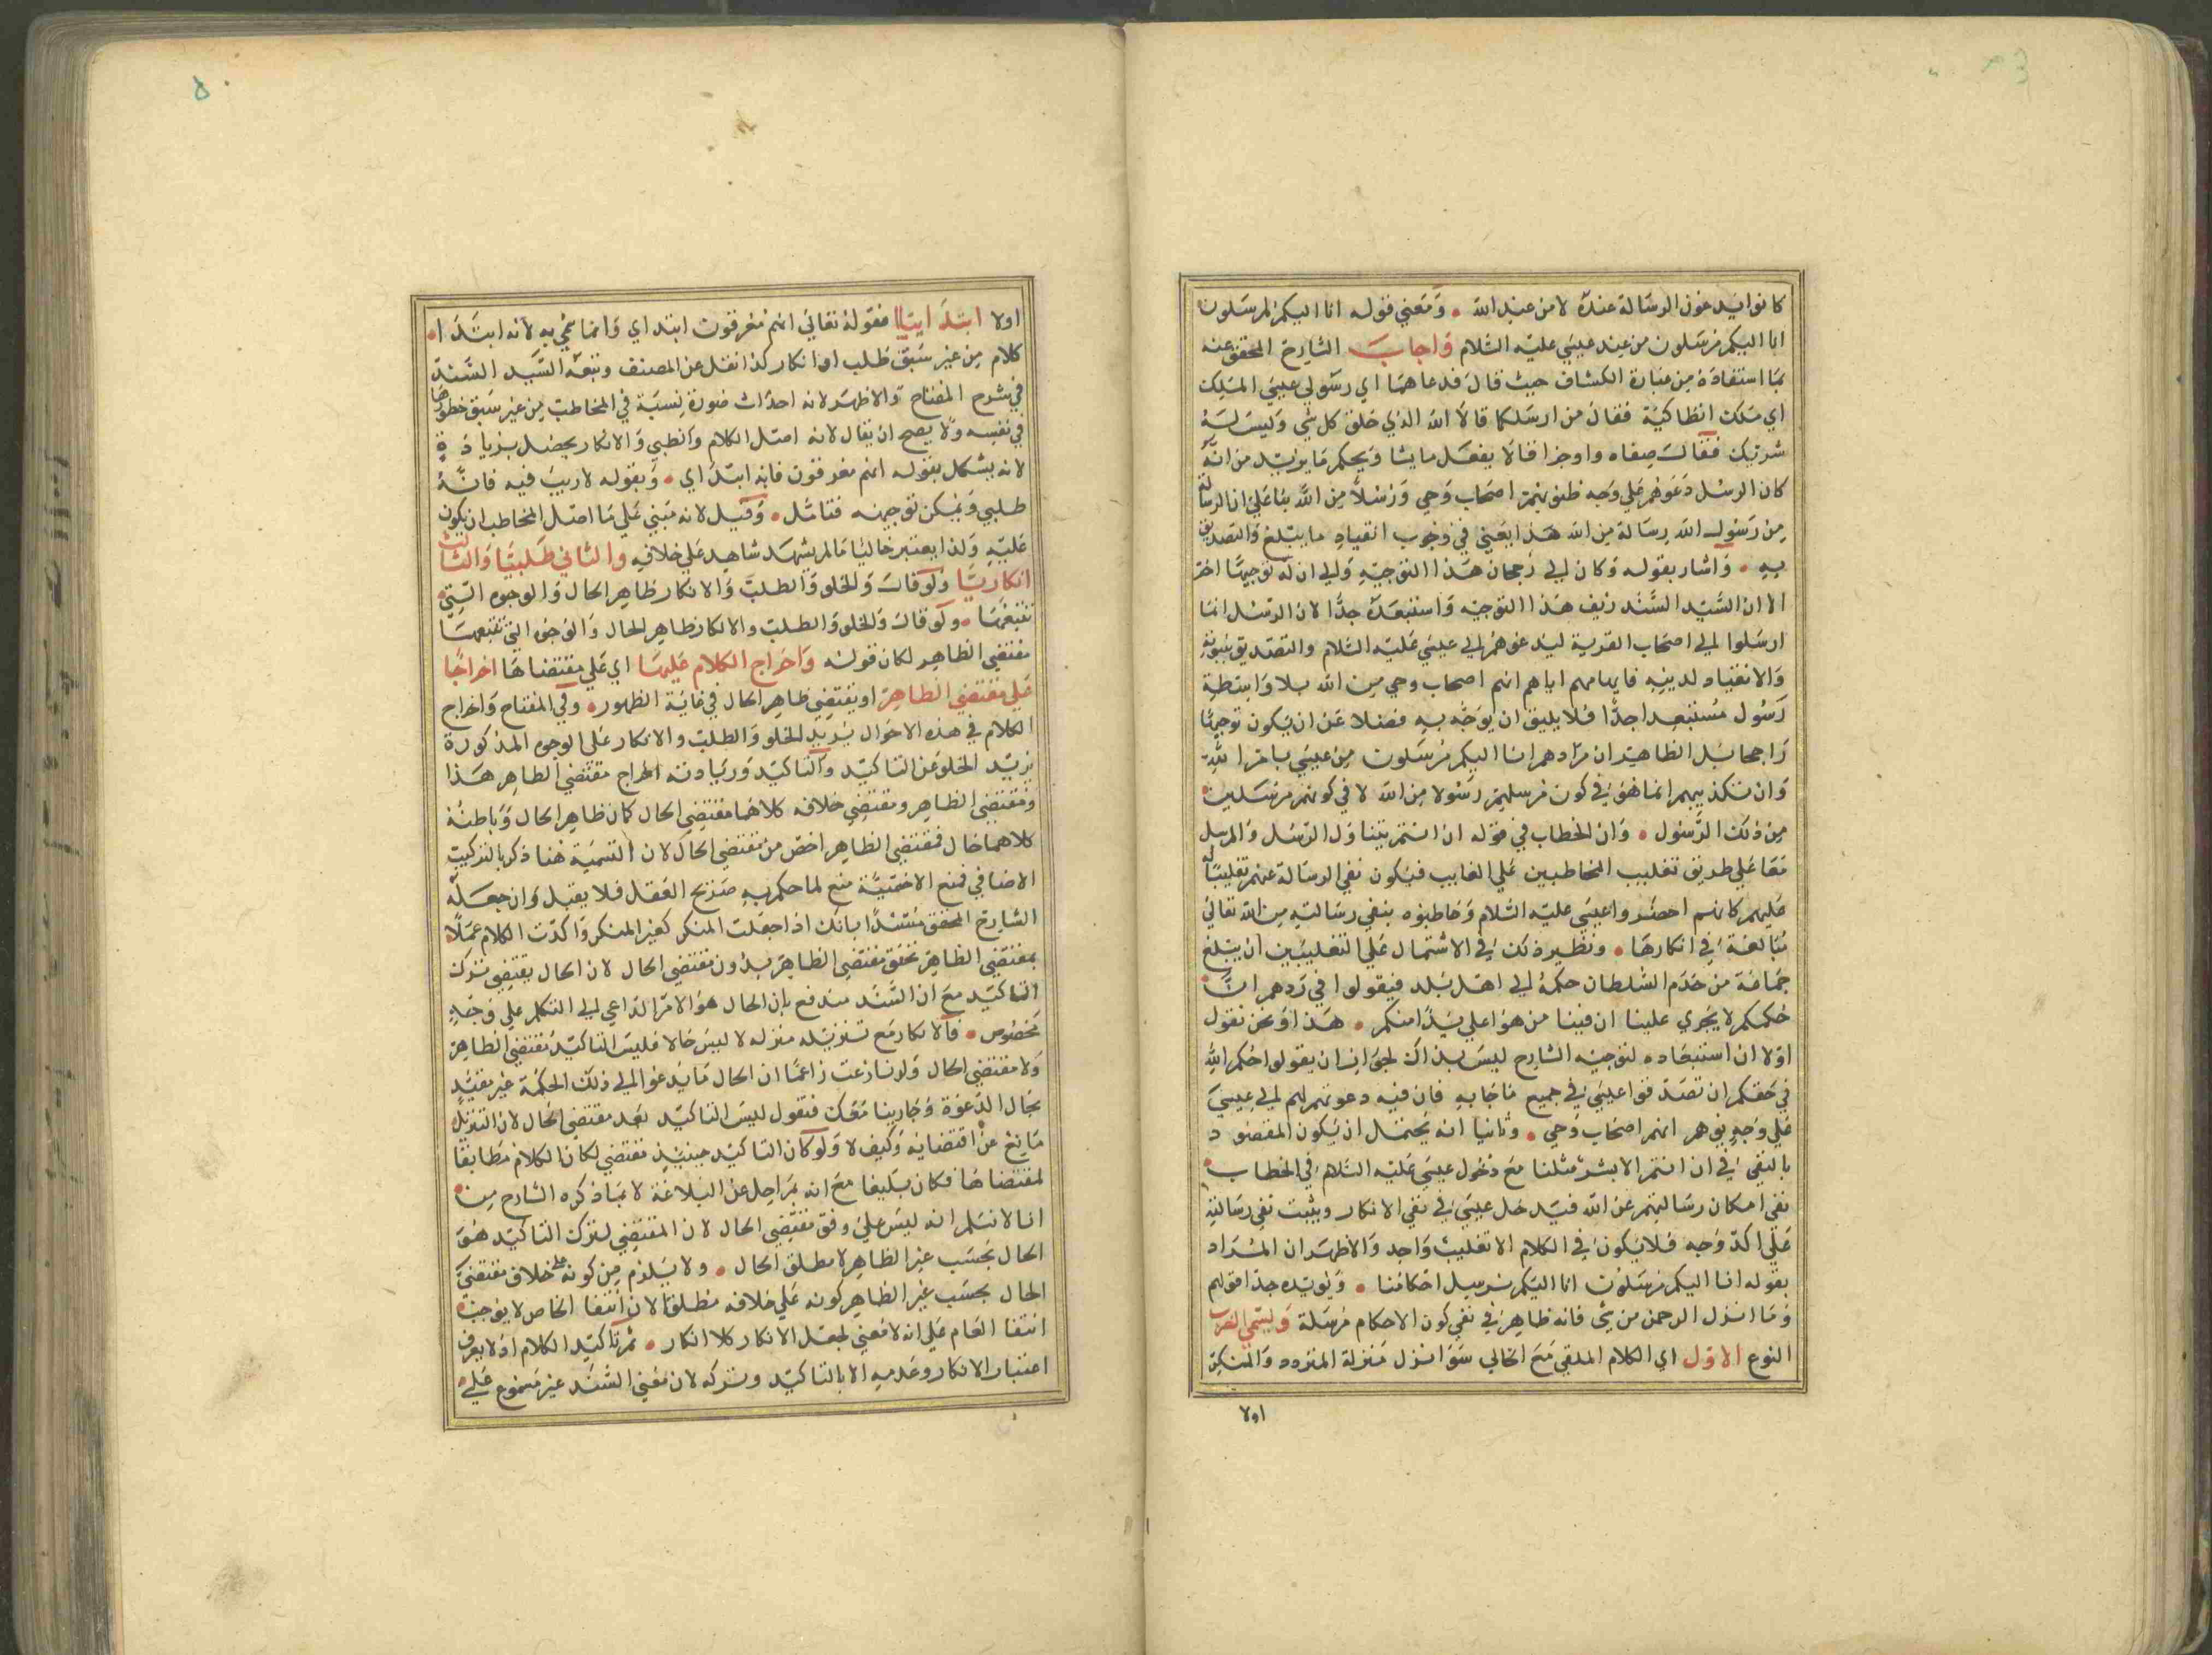 كانوا يدعون الرسالة عنده لا من عند الله • ومعني قوله انا اليكم لمرسلون
انا اليكم مرسلون من عند عيسي عليه السلام واجاب الشارح المحقق عنه
بما استفاده من عبارة الكشاف حيث قال فدعاهما اي رسولي عيسي الملك
اي ملك انطاكية فقال من ارسلكما قالا الله الذي خلق كل شي وليس له
شريك فقال صفاه واوجزا قالا يفعل ما يشا ويحكم ما يريد من انه
كان الرسل دعوهم علي وجه ظنوا انهم اصحاب وحي ورسلا من الله بنا علي ان الرسالة
من رسول الله رسالة من الله هذا يعني في وجوب انقياد ما يبلغ والتصديق
به • واشار بقوله وكان الي رجحان هذا التوجيه والي ان له توجيها اخر
الا ان السيد السند زيف هذا التوجيه واستبعده جدا لان الرسل انما
ارسلوا الي اصحاب القرية ليدعوهم الي عيسي عليه السلام والتصديق بنبوته
والانقياد لدينه فايهامهم اياهم انهم اصحاب وحي من الله بلا واسطة
رسول مستبعد جدا فلا يليق ان يوجه به فضلا عن ان يكون توجيها
راجحا بل الظاهر ان مرادهم انا اليكم مرسلون من عيسي بامر الله
وان تكذيبهم انما هو في كون مرسليهم رسولا من الله لا في كونهم مرسلين
من ذلك الرسول • وان الخطاب في قوله ان انتم يتناول الرسل والمرسل
معا علي طريق تغليب المخاطبين علي الغايب فيكون نفي الرسالة عنهم تغليبا له
عليهم كانهم احضروا عيسي عليه السلام وخاطبوه بنفي رسالته من الله تعالي
مبالغة في انكارها • ونظير ذلك في الاشتمال علي التغليبين ان يبلغ
جماعة من خدم السلطان حكمه الي اهل بلد فيقولوا في ردهم ان
حكمكم لا يجري علينا ان فينا من هو اعلي يدا منكم • هذا ونحن نقول
اولا ان استبعاده لتوجيه الشارح ليس بذاك لجواز ان يقولوا حكم الله
في حقكم ان تصدقوا عيسي في جميع ما جا به فان فيه دعوتهم لهم الي عيسي
علي وجه يوهم انهم اصحاب وحي • وثانيا انه يحتمل ان يكون المقصود
بالنفي في ان انتم الا بشر مثلنا مع دخول عيسي عليه السلام في الخطاب
نفي امكان رسالتهم عن الله فيدخل عيسي في نفي الانكار ويثبت نفي رسالته
علي اكد وجه فلا يكون في الكلام الا تغليب واحد والاظهر ان المراد
بقوله انا اليكم مرسلون انا اليكم نرسل احكامنا • ويويده جدا قولهم
وما انزل الرحمن من شي فانه ظاهر في نفي كون الاحكام مرسلة ويسمي الضرب
النوع الاول اي الكلام الملقي مع الخالي سوا نزل منزلة المتردد والمنكر
اولا
اولا ابتدائيا فقوله تعالي انهم مغرقون ابتداي وانما سمي به لانه ابتدا
كلام من غير سبق طلب او انكار كذا نقل عن المصنف وتبعه السيد السند
في شرح المفتاح والاظهر لانه احداث صورة نسبة في المخاطب من غير سبق خطورها
في نفسه ولا يصح ان يقال لانه اصل الكلام والطلبي والانكار يحصل بزيادة
لانه يشكل بقوله انهم مغرقون فانه ابتداي • وبقوله لا ريب فيه فانه
طلبي ويمكن توجيهه فتامل • وقيل لانه مبني علي ما اصل المخاطب ان يكون
عليه ولذا يعتبر خاليا ما لم يشهد شاهد علي خلافه والثاني طلبيا والثالث
انكاريا ولو قال والخلو والطلب والانكار ظاهر الحال والوجوه التي
تتبعها • ولو قال والخلو والطلب والانكار ظاهر الحال والوجوه التي تتبعها
مقتضي الظاهر لكان قوله واخراج الكلام عليها اي علي مقتضاها اخراجا
علي مقتضي الظاهر او يقتضي ظاهر الحال في غاية الظهور • وفي المفتاح واخراج
الكلام في هذه الاحوال يريد الخلو والطلب والانكار علي الوجوه المذكورة
يريد الخلو عن التاكيد والتاكيد وزيادته اخراج مقتضي الظاهر هذا
ومقتضي الظاهر ومقتضي خلافه كلاهما مقتضي الحال كان ظاهر الحال وباطنه
كلاهما حال فمقتضي الظاهر اخص من مقتضي الحال لان التسمية هنا ذكر بالتركيب
الاضافي فمنع الاخصية منع لما حكم به صريح العقل فلا يقبل وان جعله
الشارح المحقق مستندا بانك اذا جعلت المنكر كغير المنكر واكدت الكلام عملا
بمقتضي الظاهر تحقق مقتضي الظاهر بدون مقتضي الحال لان الحال يقتضي ترك
التاكيد مع ان السند مندفع بان الحال هو الامر الداعي الي التكلم علي وجه
مخصوص • فالانكار مع تنزيله منزله لا ليس حالا فليس التاكيد مقتضي الظاهر
ولا مقتضي الحال ولو نازعت زاعما ان الحال ما يدعو الي ذلك الحكمة غير مقيد
بحال الدعوة وجارينا معك فنقول ليس التاكيد بعد مقتضي الحال لان التنزيل
مانع عن اقتضايه وكيف لا ولو كان التاكيد حينيذ مقتضي لكان الكلام مطابقا
لمقتضاها فكان بليغا مع انه بمراحل عن البلاغة لا بما ذكره الشارح من
انا لا نسلم انه ليس علي وفق مقتضي الحال لان المقتضي لترك التاكيد هو
الحال بحسب غير الظاهر لا مطلق الحال • ولا يلزم من كونه علي خلاف مقتضي
الحال بحسب غير الظاهر كونه علي خلافه مطلقا لان انتفا الخاص لا يوجب
انتفا العام علي انه لا معني لجعل الانكار كلا انكار • ثم تاكيد الكلام اذ لا يعرف
اعتبار الانكار وعدمه الا بالتاكيد وتركه لان معني السند غير مسموع علي